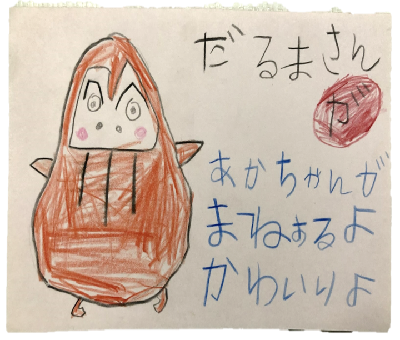 だるまさん
が
あかちゃんが
まねするよ
かわいいよ